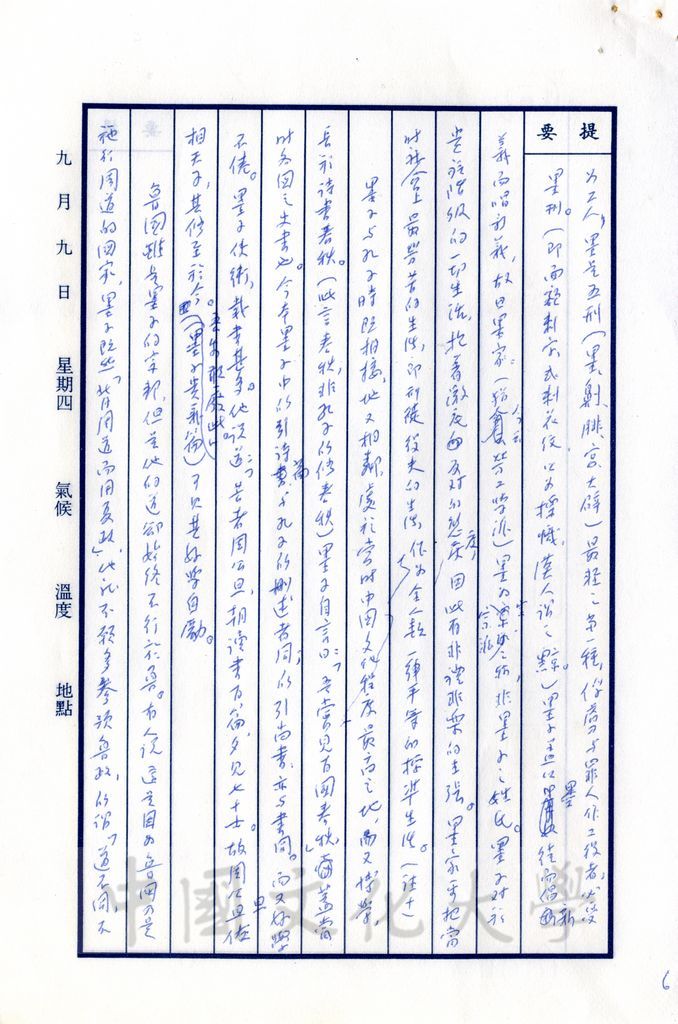 提要
為工人，墨是五刑（墨、劓、腓、宮、大辟）最輕之第一種，俘虜與罪人作工役者，大致
墨刑。（即面額刺字或刺花紋，以為標幟，漢人謂之黥。）墨子蓋以墨徒而倡新
義而唱新義，故曰墨家。（猶今云勞工學派）墨為學派宗派之稱，非墨子之姓氏。墨子對於
貴族階級的一切生活，抱著激底的反對的態度，因此有非禮非樂的主張。墨家要把當
時社會上最勞苦的生活，即刑徒役夫的生活，作為全人類一律平等的標準生活。（註十）
墨子与孔子時既相接，地又相鄰，處於當時中國文化程度最高之地，而又博學，
長於詩書春秋。（此言春秋，非孔子所修春秋）墨子自言曰：「吾嘗見百國春秋」，蓋當
時各國之史書也。今本墨子中所引詩篇，与孔子所刪述者同；所引尚書，亦与書同。而又好學
不倦。墨子使衛，載書甚多。他說道：「昔者周公旦，朝讀書百篇，夕見七十士。故周公旦佐
相天子，其修至於今。吾安敢廢此」（墨子貴義篇）可見其好學自勵。
魯國雖是墨子的宗邦，但是他的道卻始終不行於魯。有人說這是因為魯國乃是
施行周道的國家，墨子既然「背周道而用夏政」，他就不願多參預魯政，所謂「道不同，不
九月九日 星期四 氣候 溫度 地點
中國文化大學
6